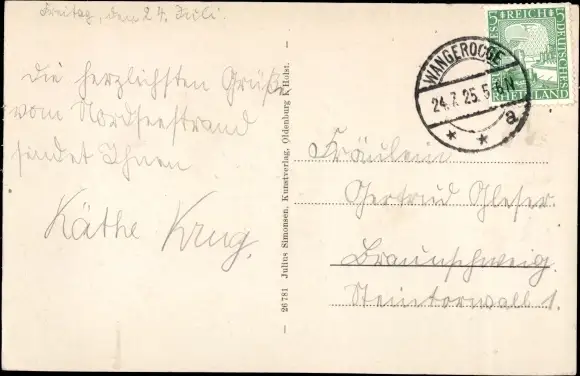 Freitag, den 24. Juli.
Die herzlichsten Grüße
vom Nordseestrand
sendet Ihnen
Käthe Krug.
26781 Julius Simonsen, Kunstverlag, Oldenburg i. Holst.
5 REICH 5
DEUTSCHES
RHEINLAND
WANGEROOGE
24.7.25.5-6N
* * a
Fräulein
Gertrud Gleser
Braunschweig.
Steintorwall 1.